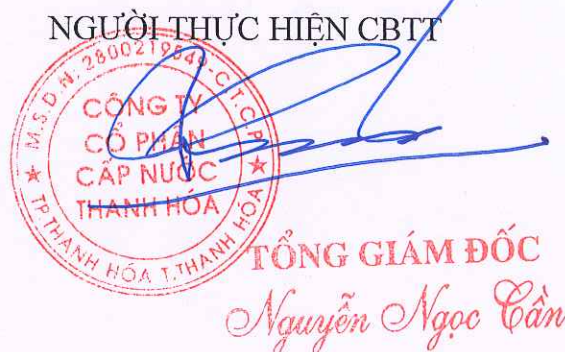 NGƯỜI THỰC HIỆN CBTT
M.S.D.N: 2800219549-C.T.C.P
CÔNG TY
CỔ PHẦN
CẤP NƯỚC
THANH HÓA
TP.THANH HÓA T.THANH HÓA
TỔNG GIÁM ĐỐC
Nguyễn Ngọc Cẩn